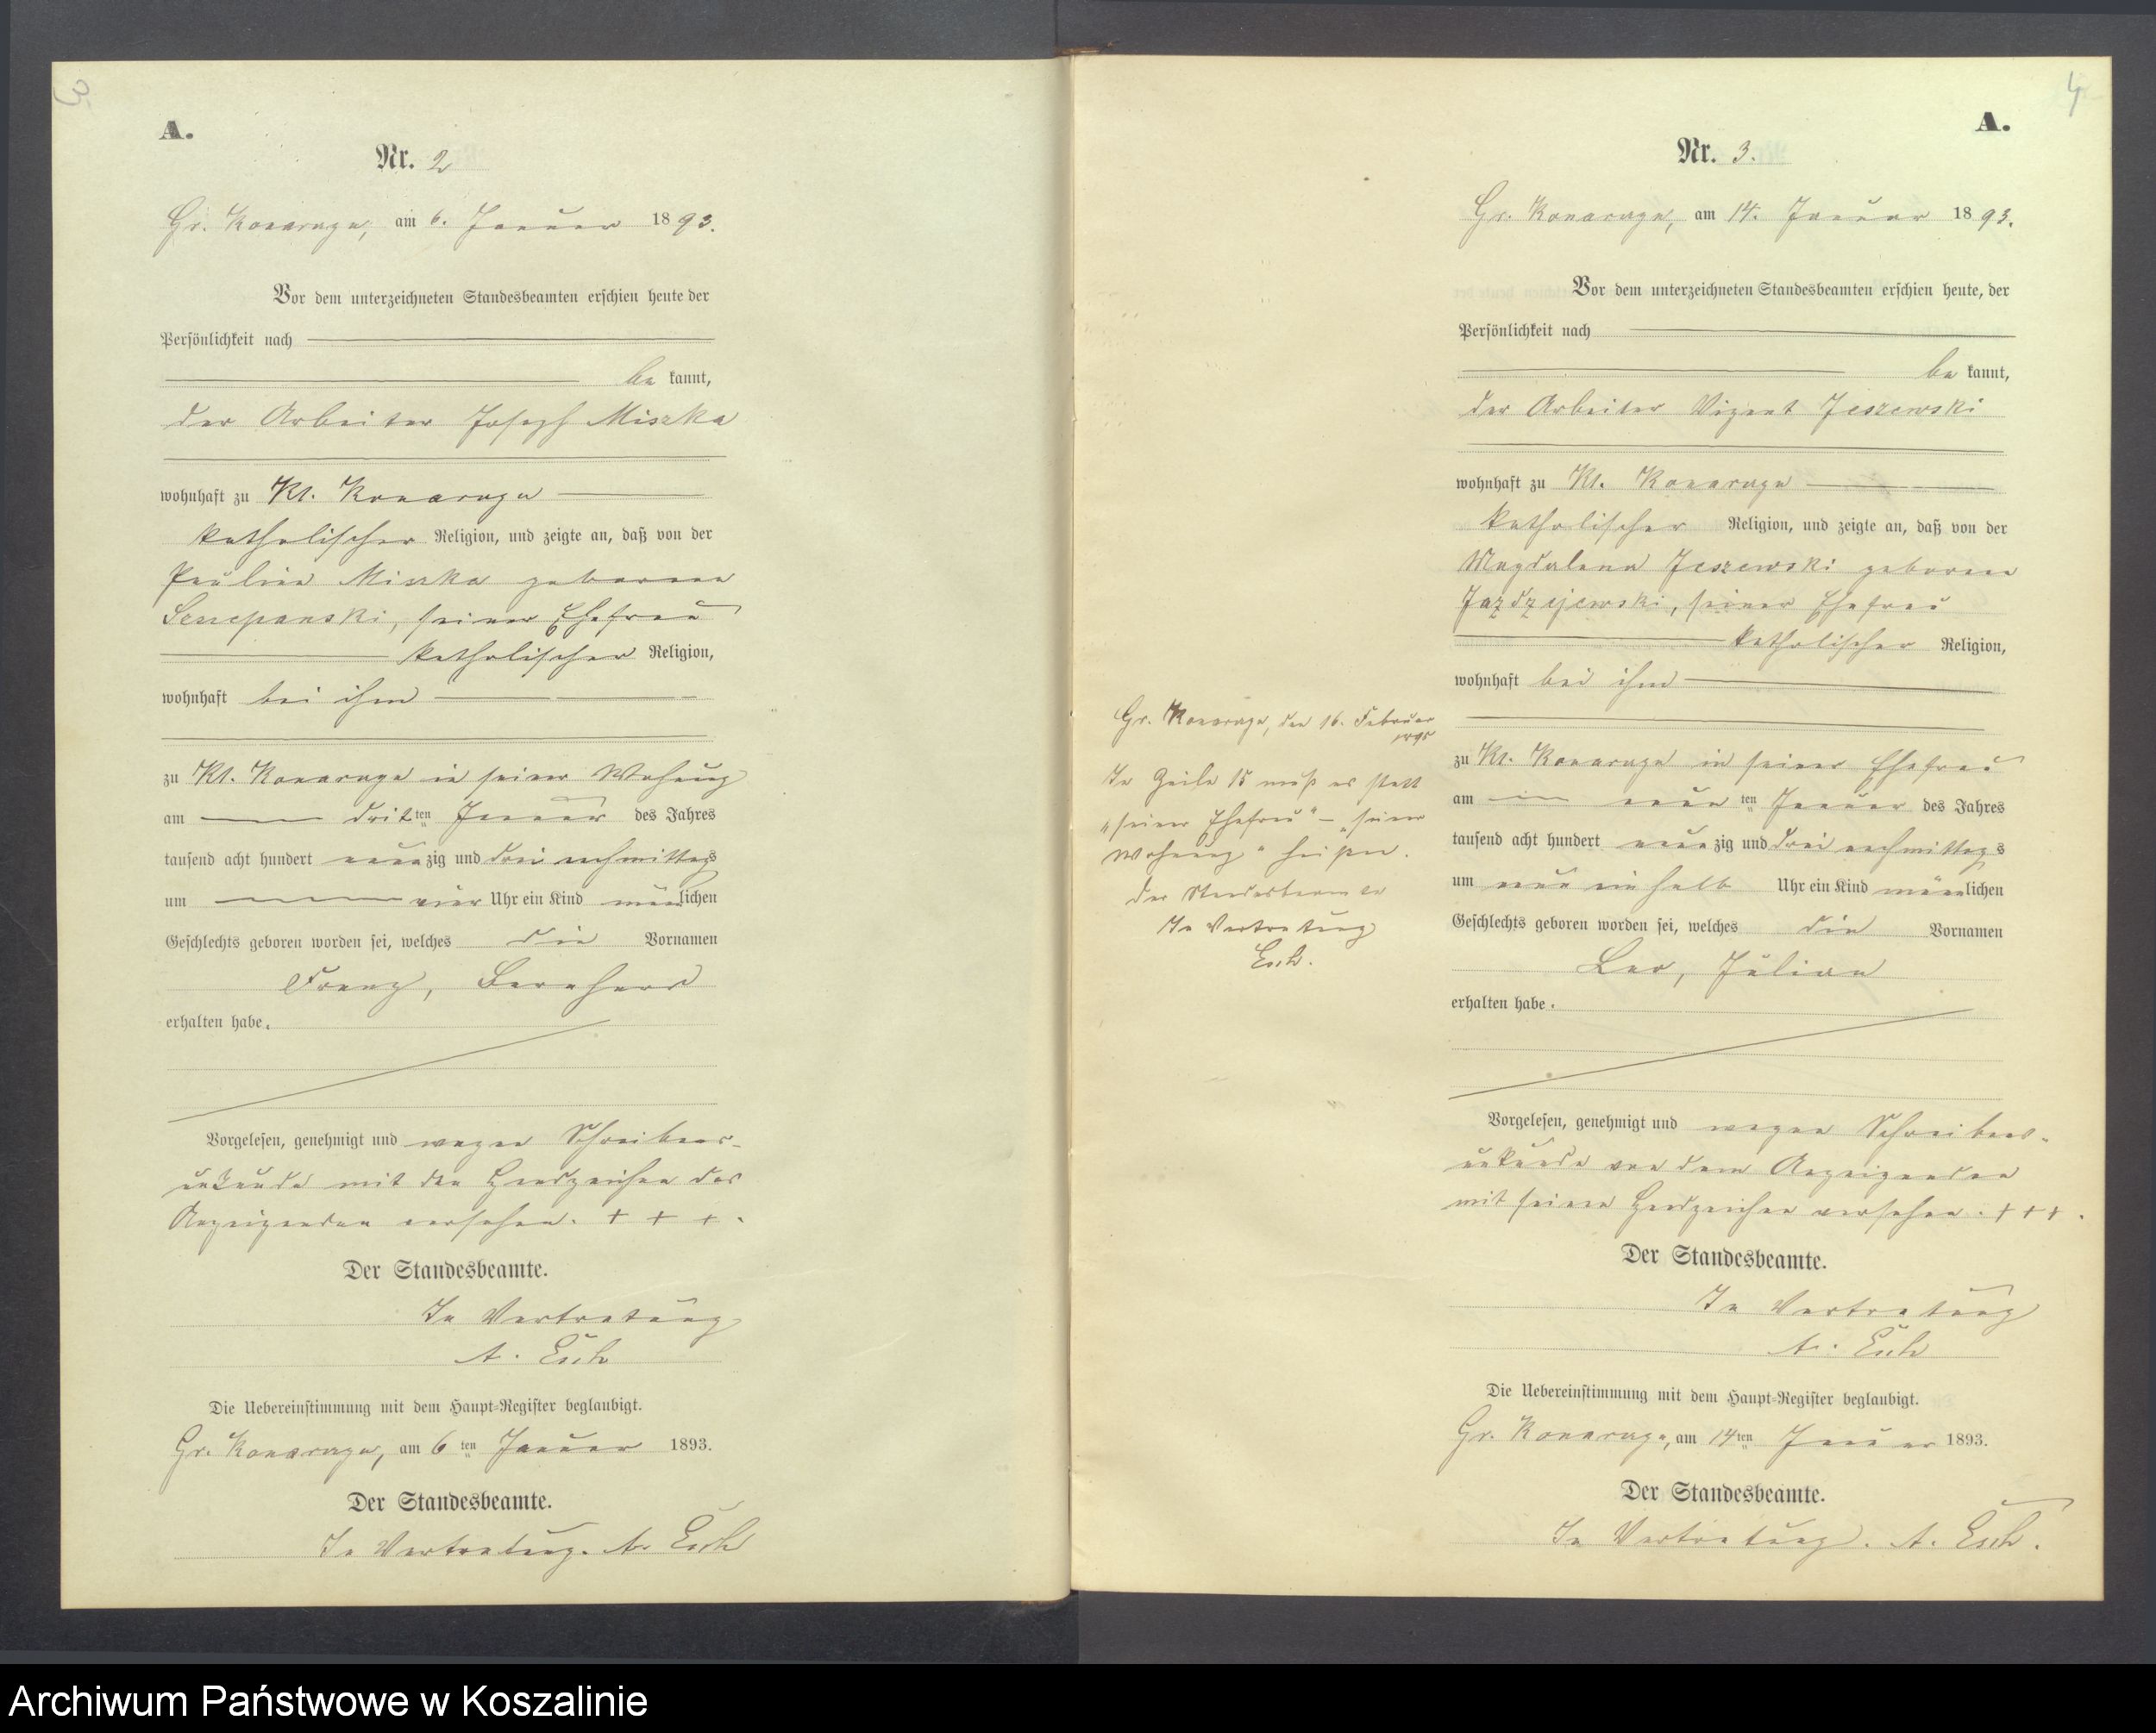 3
A.
Nr. 2
Gr. Konarczyn, am 6. Januar 1893.
Vor dem unterzeichneten Standesbeamten erschien heute der
Persönlichkeit nach
be kannt,
der Arbeiter Joseph Miszka
wohnhaft zu Kl. Konarczyn
katholischer Religion, und zeigte an, daß von der
Paulina Miszka geborene
Szczepanski, seiner Ehefrau
katholischer Religion,
wohnhaft bei ihm
zu Kl. Konarczyn in seiner Wohnung
am dritten Januar des Jahres
tausend acht hundert neunzig und drei nachmittags
um vier Uhr ein Kind männlichen
Geschlechts geboren worden sei, welches die Vornamen
Franz, Bernhard
erhalten habe.
Vorgelesen, genehmigt und wegen Schreibens-
unkunde mit den Handzeichen des
Anzeigenden versehen. + + +.
Der Standesbeamte.
In Vertretung
A. Esch
Die Uebereinstimmung mit dem Haupt-Register beglaubigt.
Gr. Konarczyn, am 6 ten Januar 1893.
Der Standesbeamte.
In Vertretung. A. Esch
4
A.
Nr. 3.
Gr. Konarczyn, am 14. Januar 1893.
Vor dem unterzeichneten Standesbeamten erschien heute, der
Persönlichkeit nach
be kannt,
der Arbeiter Vizent Jeszewski
wohnhaft zu Kl. Konarczyn
katholischer Religion, und zeigte an, daß von der
Magdalena Jeszewski geborene
Jazdzejewski, seiner Ehefrau
katholischer Religion,
wohnhaft bei ihm
zu Kl. Konarczyn in seiner Ehefrau
am neun ten Januar des Jahres
tausend acht hundert neunzig und drei nachmittags
um neun ein halb Uhr ein Kind männlichen
Geschlechts geboren worden sei, welches die Vornamen
Leo, Julian
erhalten habe.
Vorgelesen, genehmigt und wegen Schreibens-
unkunde von dem Anzeigenden
mit seinen Handzeichen versehen. +++.
Der Standesbeamte.
In Vertretung
A. Esch
Die Uebereinstimmung mit dem Haupt-Register beglaubigt.
Gr. Konarczyn, am 14ten Januar 1893.
Der Standesbeamte.
In Vertretung. A. Esch.
Gr. Konarczyn, den 16. Februar
In Zeile 15 muß es statt
"seiner Ehefrau" – "seiner
Wohnung" heißen.
Der Standesbeamte
In Vertretung
Esch.
Archiwum Państwowe w Koszalinie